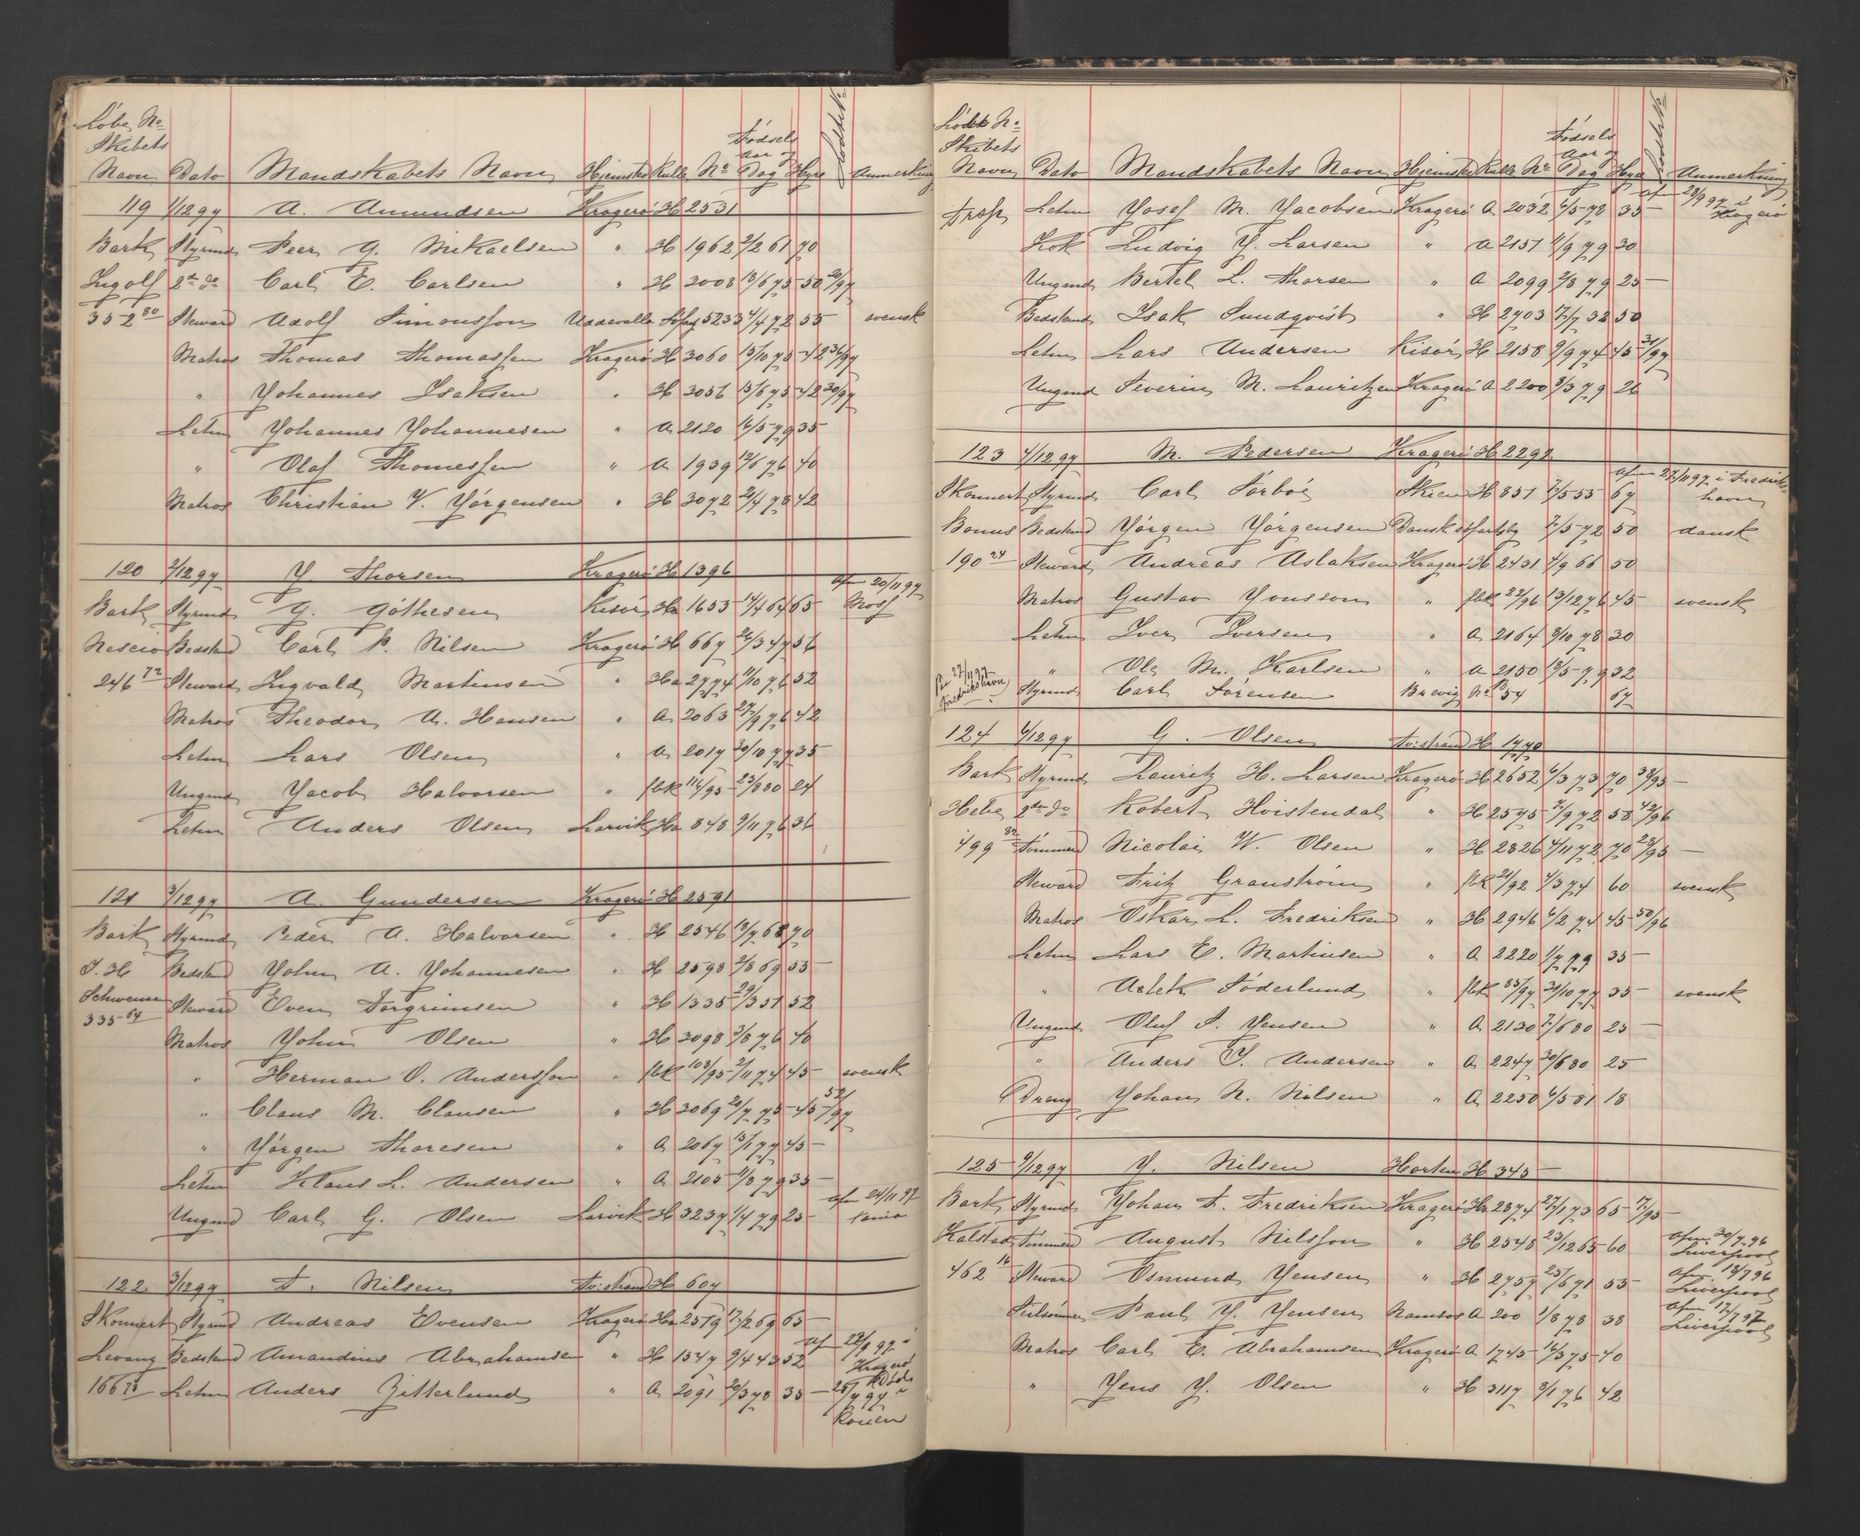 Løbe No
Skibets
Navn Dato Mandskabets Navn Hjemsted Rulle No Fødsels Aar og Dag Hyre Anmerkning
119 1/12 97 A. Amundsen Kragerø H 2531
Bark Styrmd Peer G. Mikaelsen " H 1962 2/2 61 70
Ingolf 2den do Carl E. Carlsen " H 3008 13/6 75 50
352 80 Steward Adolf Simonsson Uddevalla 5233 4/4 72 55 svensk
Matros Thomas Thomassen Kragerø H 3060 15/10 75 42
" Johannes Isaksen " H 3056 15/6 75 42 30/97
Letm Johannes Johannesen " A 2120 6/5 79 35
" Olaf Thomessen " A 1939 12/6 76 40
Matros Christian V. Jørgensen " H 3072 21/4 78 42
120 2/12 97 J Thorsen Kragerø H 1396
Bark Styrmd G. Gøthesen Risør Ha 1653 14/4 64 65 afm 20/11 97 Moss
Nescio Bedstmd Carl P. Nilsen Kragerø H 667 26/3 47 56
246 72 Steward Ingvald Martinsen " Ha 2774 11/10 76 52
Matros Theodor A. Hansen " A 2063 27/9 76 42
Letm Lars Olsen " A 2017 20/10 77 35
Ungmd Jacob Halvorsen " fbk 116/95 23/8 80 24
Letm Anders Olsen Larvik Ha 848 9/11 76 36
121 3/12 97 A. Gundersen Kragerø H 2591
Bark Styrmd Peder A. Halvorsen " H 2546 19/7 68 70
J. H Bedstmd John A. Johannesen " H 2598 2/8 69 55
Schwensen Steward Even Torgrimsen " H 1335 29/3 51 52
335 64
Matros John Olsen " H 3098 3/8 76 40
" Herman O. Andersson " fbk 103/95 2/11 74 45 svensk
" Claus M. Clausen " H 3069 20/7 75 45 52/97
" Jørgen Thoresen " A 2067 13/1 77 45
Letm Klaus L. Andersen " A 2105 9/8 79 35
Ungmd Carl G. Olsen Larvik H 3237 1/4 79 25 afm 24/11 97
122 3/12 97 T. Nilsen Tv:strand H 607
Skonnert Styrmd Andreas Evensen Kragerø Ha 2579 17/2 69 65
Levang Bedstmd Amandius Abrahamsen " H 1547 9/4 43 52 af 22/9 97 i Kragerø
166 75 Letm Anders Zitterlund " A 2091 20/3 78 35 Rouen
Løbe No
Skibets
Navn Dato Mandskabets Navn Hjemsted Rulle No Fødsels Aar og Dag Hyre Anmerkning
Letm Josef M. Jacobsen Kragerø A 2032 6/5 78 35 af 28/9 97 i Kragerø
Kok Ludvig J. Larsen " A 2157 11/9 79 30
Ungmd Bertel L. Thorsen " A 2099 2/8 79 25
Bedstmd Isak Sundqvist " H 2703 7/7 32 50
Letm Lars Andersen Risør H 2158 9/9 74 45 31/97
Ungmd Severin M. Lauritzen Kragerø A 2200 3/3 79 26
123 4/12 97 M. Pedersen Kragerø H 2292
Skonnert Styrmd Carl Sørbøe Skien H 851 7/5 55 67 afm 27/11 97 i Fredrikshavn
Bonus Bedstmd Jørgen Jørgensen Dansk søfartsbg 7/5 72 50 dansk
190 24 Steward Andreas Aslaksen Kragerø H 2431 4/9 66 50
Matros Gustav Jonsson " fbk 22/96 13/12 76 45 svensk
Letm Iver Iversen " A 2164 8/10 78 30
" Ole M. Karlsen " A 2150 13/5 79 32
27/11 97 Fredrikshavn Styrmd Carl Sørensen Brevig No 54 67
124 6/12 97 G. Olsen Tv:strand H 1770
Bark Styrmd Lauritz H. Larsen Kragerø H 2652 6/3 73 70 38/95
Hebe 2den do Robert Hvistendal " H 2575 7/9 72 58 42/96
499 82 Tømmerm Nicolai W. Olsen " H 2826 4/11 72 70 28/95
Steward Fritz Granstrøm " fbk 21/92 4/3 74 60 svensk
Matros Oskar L. Fredriksen " H 2946 6/2 74 45 50/96
Letm Lars E. Martinsen " A 2220 1/7 79 35
" Aslek Søderlund " fbk 85/97 31/10 77 35 svensk
Ungmd Oluf S. Jensen " A 2130 7/6 80 25
" Anders T. Andersen " A 2247 30/6 80 25
Dreng Johan N. Nilsen " A 2250 6/5 81 18
125 9/12 97 J. Nilsen Horten H 345
Bark Styrmd Johan F. Fredriksen Kragerø Ha 2874 27/1 73 65 17/95
Kalstad Tømmerm August Nilsson " H 2548 23/12 65 60 afm 30/7 96 Liverpool
462 16 Steward Osmund Jensen " H 2757 25/6 71 55 afm 18/7 96 Liverpool
Paul J. Jensen Namsos A 200 1/8 78 38 afm 17/7 97 Liverpool
Matros Carl E. Abrahamsen Kragerø A 1745 16/3 75 40
" Jens J. Olsen " H 3117 3/1 76 42